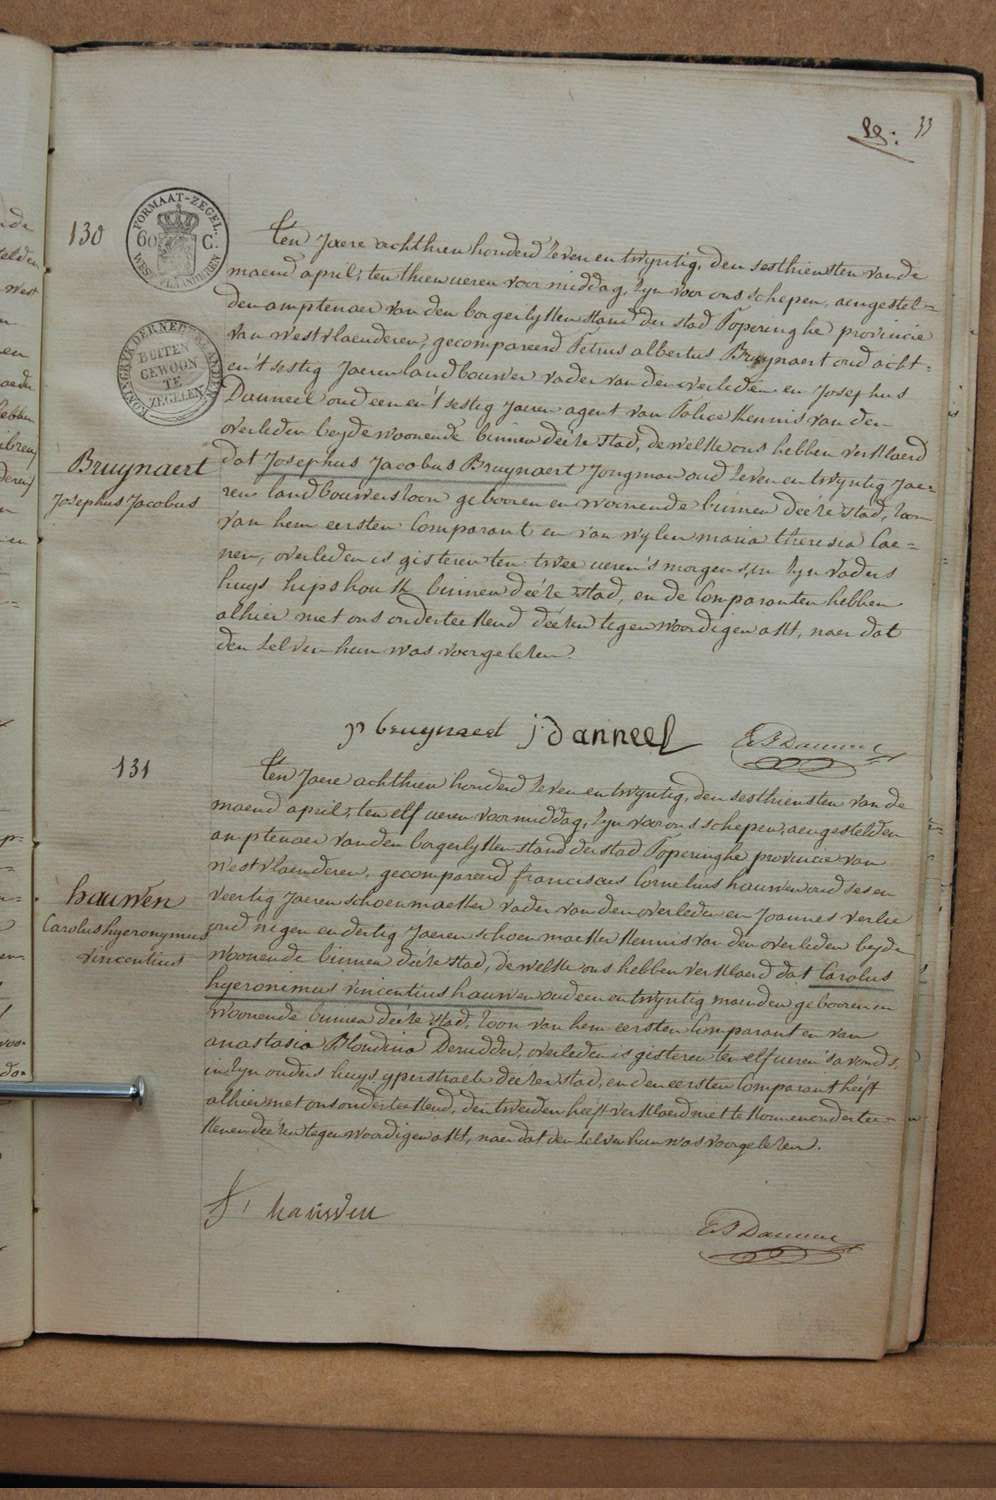 33
130
FORMAAT-ZEGEL.
60 C.
WEST-VLAANDEREN
KONINGRYK DER NEDERLANDEN
BUITEN
GEWOON
TE
ZEGELEN
Bruynaert
Josephus Jacobus
Ten Jaere achthien honderd zeven en twyntig, den sesthiensten van de
maend april, ten thien ueren voor middag, zyn voor ons schepen, aengestel=
den amptenaer van den borgerlykken stand der stad Poperinghe provincie
van westvlaenderen, gecompareerd Petrus albertus Bruynaert oud acht-
en 't sestig Jaeren landbouwer vader van den overleden en Josephus
Danneel oud een en 't sestig Jaeren agent van Police kennis van den
overleden beyde woonende binnen deéze stad, de welke ons hebben verklaerd
dat Josephus Jacobus Bruynaert Jongman oud zeven en twyntig Jae=
ren landbouwerszoon gebooren en woonende binnen deéze stad, zoon
van hem eersten Comparant en van wylen maria theresia Cae=
nen, overleden is gisteren ten twee ueren 's morgens, in zyn vaders
huys hipshoek binnen deéze stad, en de Comparanten hebben
alhier met ons onderteekend deézen tegenwoordigen akt, naer dat
den zelven hun was voorgelezen.
p bruynaert j:danneel
131
hauwen
Carolus hyeronymus
vincentius
Ten Jaere achthien honderd zeven en twyntig, den sesthiensten van de
maend april, ten elf ueren voormiddag, zyn voor ons schepen, aengestelden
amptenaer van den borgerlykken stand der stad Poperinghe provincie van
westvlaenderen, gecompareerd franciscus Cornelius hauwen oud ses en
veertig Jaeren schoenmaeker vader van den overleden en Joannes verlie
oud negen en dertig Jaeren schoenmaeker kennis van den overleden beyde
woonende binnen deéze stad, de welke ons hebben verklaerd dat Carolus
hyeronimus vincentius hauwen oud een en twyntig maenden gebooren en
woonende binnen deéze stad, zoon van hem eersten Comparant en van
anastasia Blondina Deridder, overleden is gisteren ten elf ueren 's avonds,
in zyn ouders huys yperstraete deézer stad, en den eersten Comparant heeft
alhier met ons onderteekend, den tweeden heeft verklaerd niet te konnen ondertee-
kenen deézen tegenwoordigen akt, naer dat den zelven hun was voorgelezen.
f hauwen